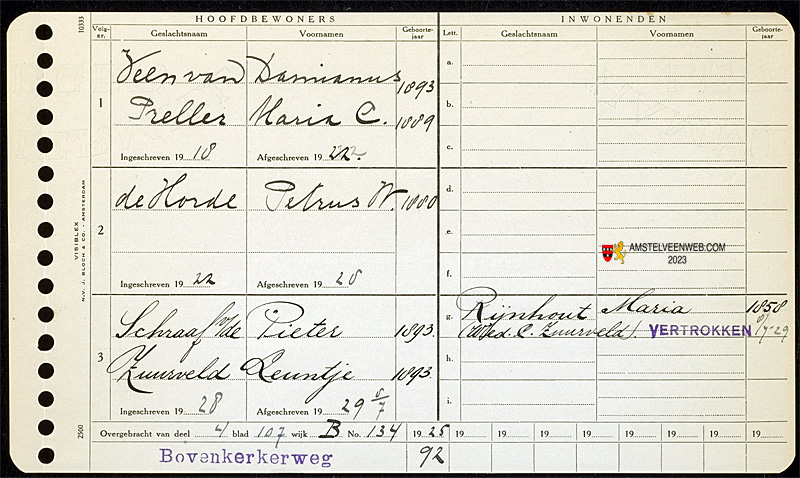 HOOFDBEWONERS
INWONENDEN
10333
Volg-nr. Geslachtsnaam Voornamen Geboorte-jaar
Lett. Geslachtsnaam Voornamen Geboorte-jaar
1
Veen van Damianus 1893
Preller Maria C. 1889
Ingeschreven 19 18 Afgeschreven 19 22.
a.
b.
c.
2
de Horde Petrus W. 1880
Ingeschreven 19 22 Afgeschreven 19 28
d.
e.
f.
AMSTELVEENWEB.COM
2023
3
Schraaf v/de Pieter 1893.
Zuurveld Leuntje 1893.
Ingeschreven 19 28 Afgeschreven 19 29 8/7
g. Rijnhout Maria 1858
(Wed. C. Zuurveld). VERTROKKEN 8/7-29
h.
i.
VISIBLEX
N.V. J. BLOCH & CO. - AMSTERDAM
2560
Overgebracht van deel 4 blad 107 wijk B No. 134 19 25 19 19 19 19 19 19 19 19
Bovenkerkerweg 92